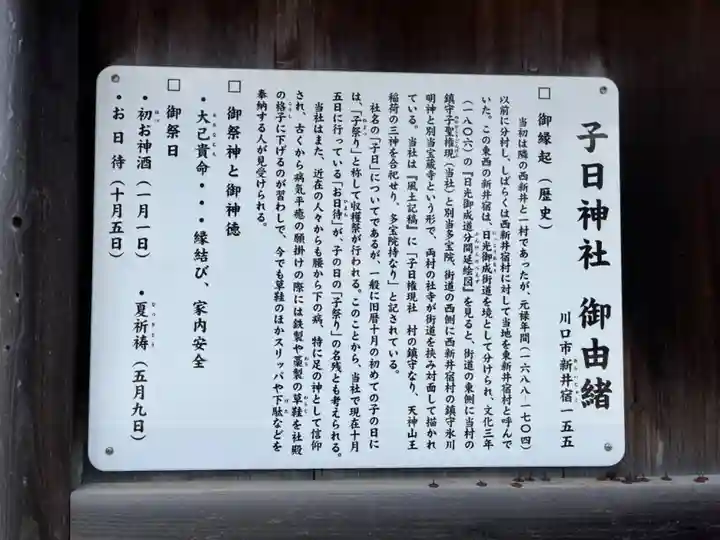 子日神社 御由緒
川口市新井宿一五五
□ 御縁起（歴史）
当初は隣の西新井と一村であったが、元禄年間（一六八八―一七〇四）
以前に分村し、しばらくは西新井宿村に対して当地を東新井宿村と呼んで
いた。この東西の新井宿は、日光御成街道を境として分けられ、文化三年
（一八〇六）の『日光御成道分間延絵図』を見ると、街道の東側に当村の
鎮守子聖権現（当社）と別当多宝院、街道の西側に西新井宿村の鎮守氷川
明神と別当宝蔵寺という形で、両村の社寺が街道を挟み対面して描かれ
ている。当社は『風土記稿』に「子日権現社　村の鎮守なり、天神山王
稲荷の三神を合祀せり、多宝院持なり」と記されている。
社名の「子日」についてであるが、一般に旧暦十月の初めての子の日に
は、「子祭り」と称して収穫祭が行われる。このことから、当社で現在十月
五日に行っている「お日待」が、子の日の「子祭り」の名残とも考えられる。
当社はまた、近在の人々からも腰から下の病、特に足の神として信仰
され、古くから病気平癒の願掛けの際には鉄製や藁製の草鞋を社殿
の格子に下げるのが習わしで、今でも草鞋のほかスリッパや下駄などを
奉納する人が見受けられる。
□ 御祭神と御神徳
・大己貴命・・・縁結び、家内安全
□ 御祭日
・初お神酒（一月一日）　・夏祈祷（五月九日）
・お日待（十月五日）